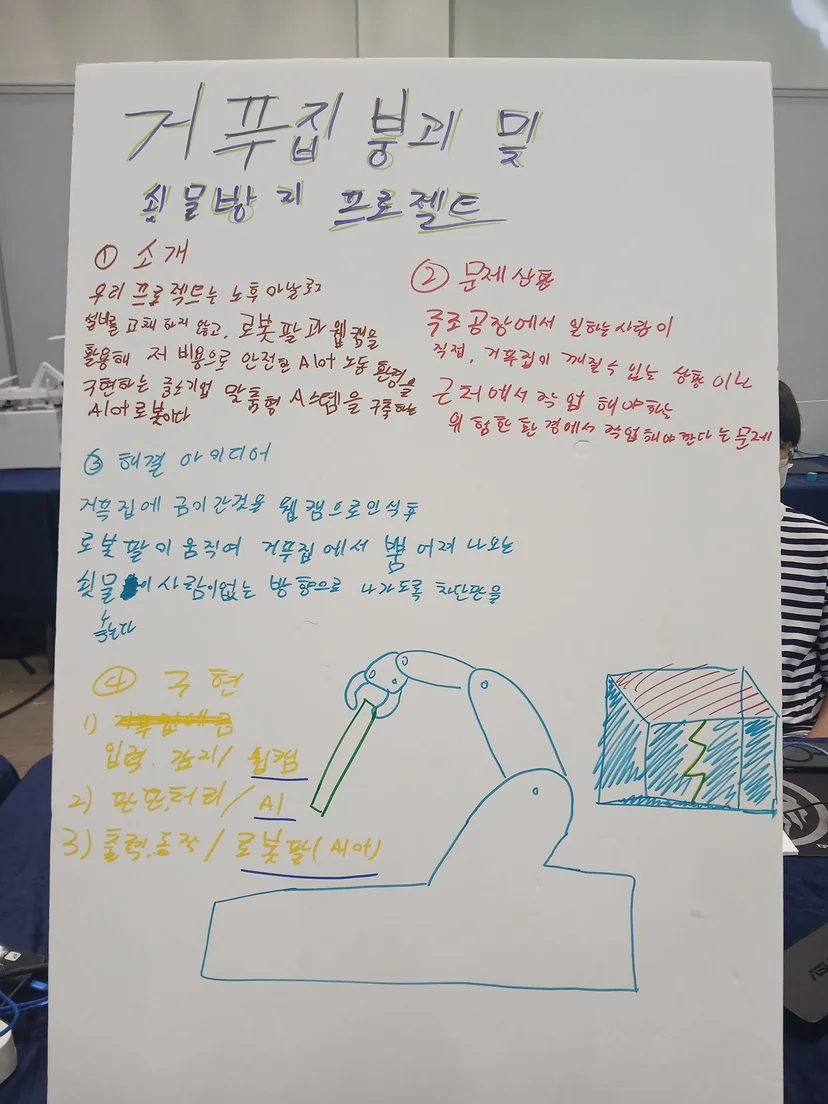 거푸집 붕괴 및
쇳물방지 프로젝트
① 소개
우리 프로젝트는 노후 아날로그
설비를 교체 하지 않고, 로봇 팔과 웹캠을
활용해 저 비용으로 안전한 AIot 노동 환경을
구현하는 중소기업 맞춤형 시스템을 구축하는
AIot 로봇이다
② 문제상황
주조 공장에서 일하는 사람이
직접, 거푸집이 깨질 수 있는 상황이나
근처에서 작업 해야하는
위험한 환경에서 작업해야 한다는 문제
③ 해결 아이디어
거푸집에 금이 간것을 웹캠으로 인식 후
로봇 팔이 움직여 거푸집에서 뿜어져 나오는
쇳물이 사람이 없는 방향으로 나가도록 차단판을
놓는다
④ 구현
1)
입력. 감지 / 웹캠
2) 판단, 처리 / AI
3) 출력, 동작 / 로봇팔(AIot)